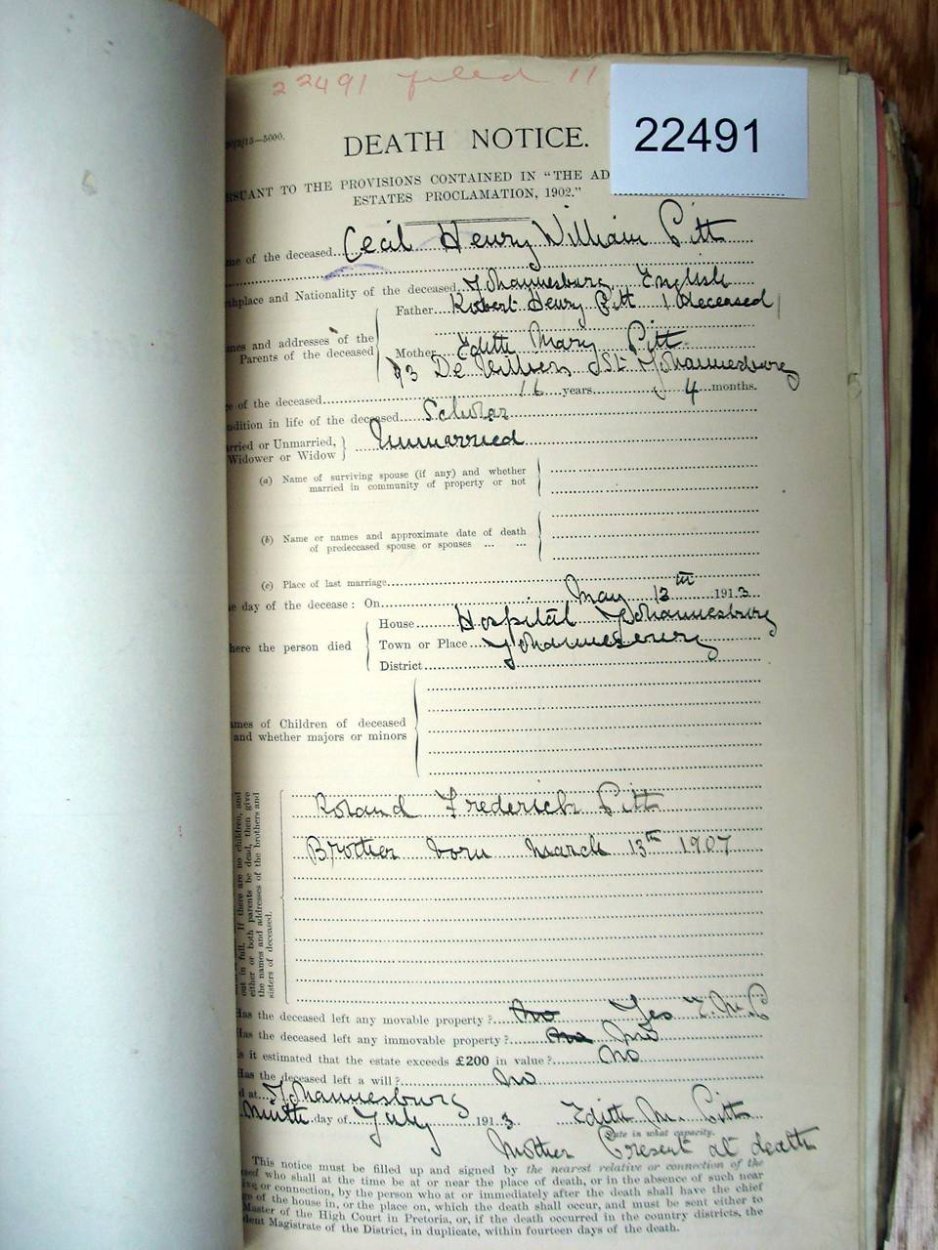 22491 filed 11
22491
15—5000.
DEATH NOTICE.
RSUANT TO THE PROVISIONS CONTAINED IN "THE AD
ESTATES PROCLAMATION, 1902."
me of the deceased Cecil Henry William Pitt
thplace and Nationality of the deceased Johannesburg English
Father Robert Henry Pitt (Deceased)
mes and addresses of the
Parents of the deceased
Mother Edith Mary Pitt
93 De Villiers St Johannesburg
e of the deceased 16 years 4 months.
ndition in life of the deceased Scholar
rried or Unmarried, Unmarried
Widower or Widow
(a) Name of surviving spouse (if any) and whether
married in community of property or not
(b) Name or names and approximate date of death
of predeceased spouse or spouses ... ...
(c) Place of last marriage
e day of the decease: On May 12th 1913
House Hospital Johannesburg
here the person died Town or Place Johannesburg
District
ames of Children of deceased
and whether majors or minors
out in full. If there are no children, and
either or both parents be dead, then give
the names and addresses of the brothers and
sisters of deceased.
Roland Frederick Pitt
Brother born March 13th 1907
Has the deceased left any movable property? no Yes E.M.P
Has the deceased left any immovable property? no
Is it estimated that the estate exceeds £200 in value? no
Has the deceased left a will? no
d at Johannesburg
ninth day of July 1913 Edith M. Pitt
State in what capacity.
Mother Present at death
This notice must be filled up and signed by the nearest relative or connection of the
sed who shall at the time be at or near the place of death, or in the absence of such near
ve or connection, by the person who at or immediately after the death shall have the chief
ge of the house in, or the place on, which the death shall occur, and must be sent either to
Master of the High Court in Pretoria, or, if the death occurred in the country districts, the
dent Magistrate of the District, in duplicate, within fourteen days of the death.